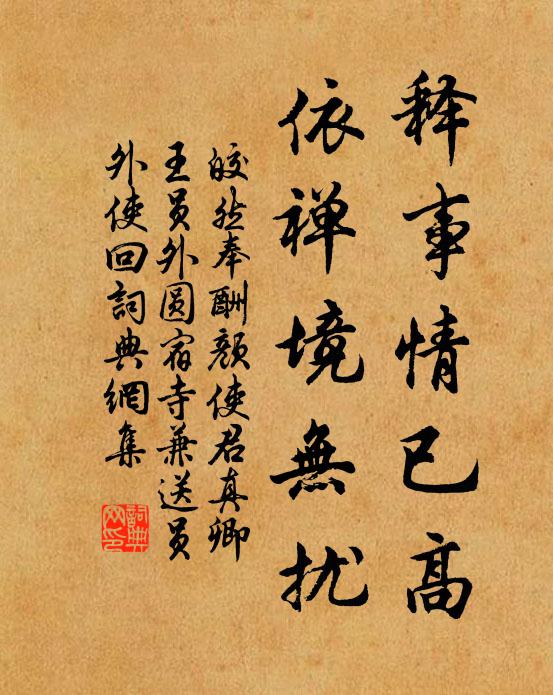 释事情已高
依禅境無扰
皎然奉酬颜使君真卿
王员外圆宿寺兼送员
外使回詞典網集
詞典网印